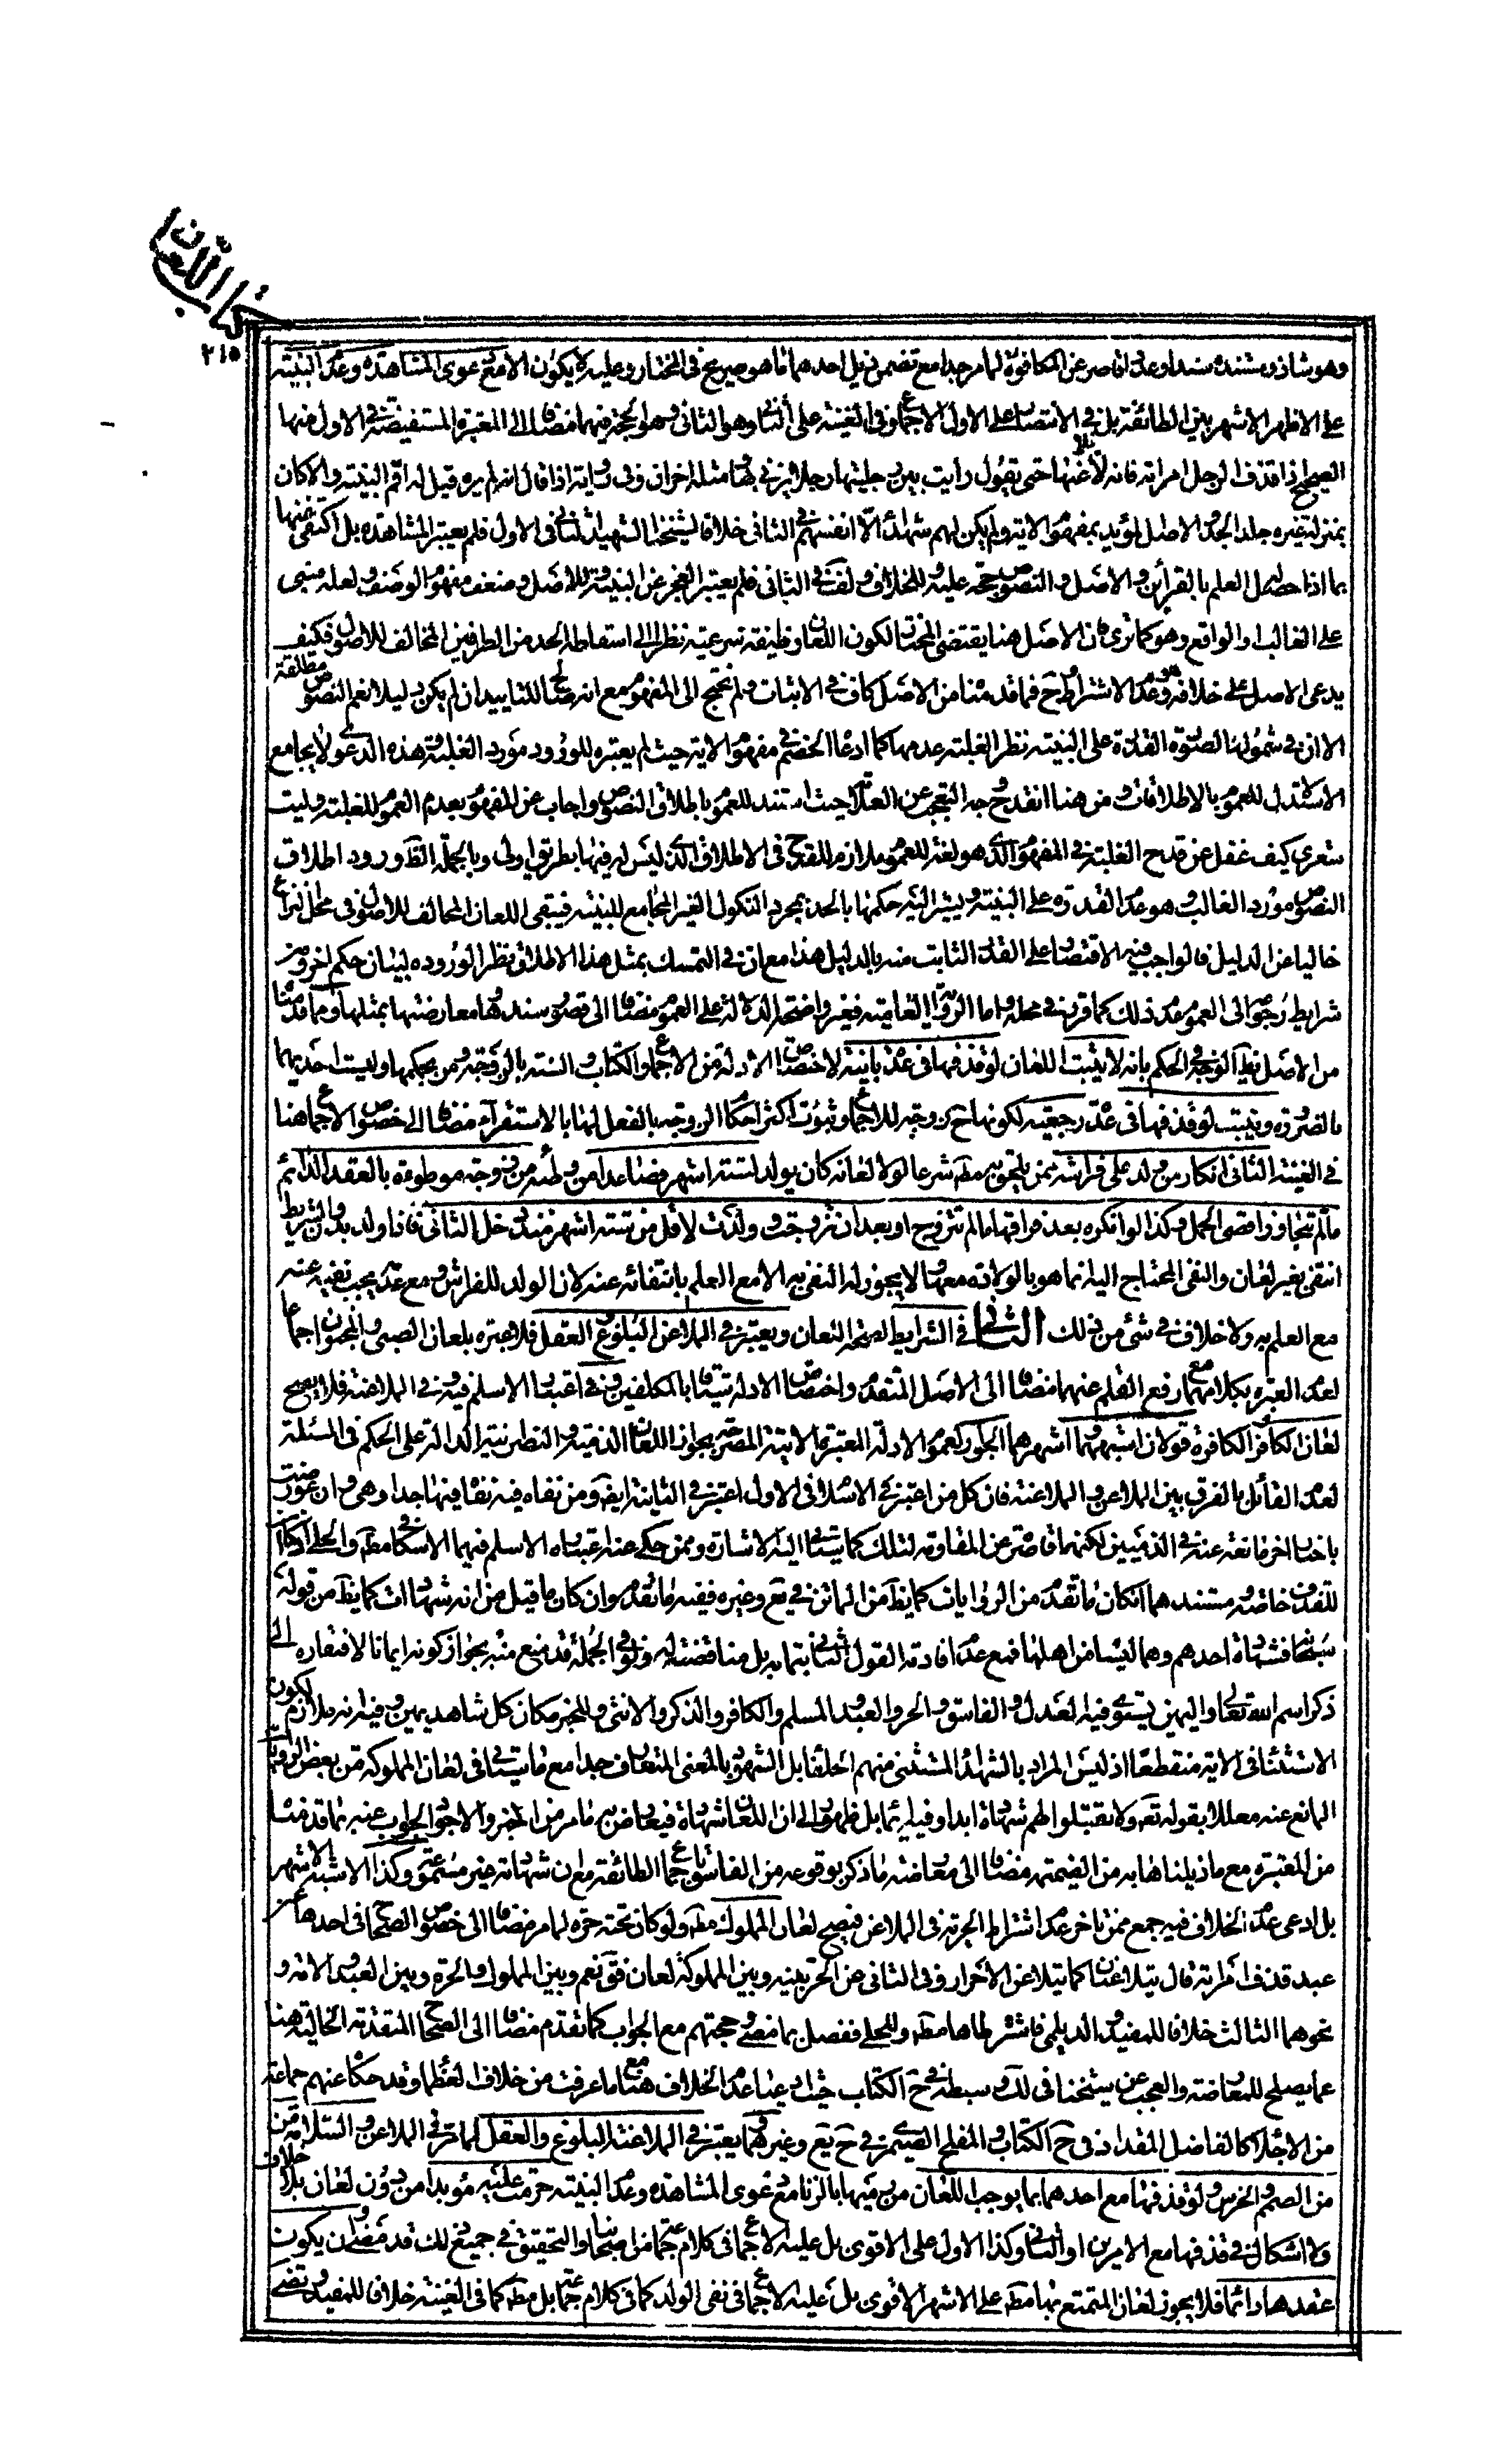 كتاب اللعان
٢١٥
وهو شاذ ومستنده سندا وعددا قاصر عن المكافؤة لما مر جدا مع تضمن ذيل احدهما ما هو صريح في المختار وعليه لا يكون الا مع دعوى المشاهدة وعدم البينة
على الاظهر الاشهر بين الطائفة بل في الانتصار على الاول الاجماع وفي الغنية على الثاني وهو الحجة فيهما مضافا الى المعتبرة المستفيضة في الاول منها
الصحيح اذا قذف الرجل امراته فانه لا يلاعنها حتى يقول رايت بين رجليها رجلا يزني بها ومثله اخر وفي رواية اذا قال انه لم يره قيل له اقم البينة والا كان
بمنزلة غيره جلد الحد الاصل المؤيد بمفهوم الاية ولم يكن لهم شهداء الا انفسهم في الثاني خلافا لشيخنا الشهيد الثاني في الاول فلم يعتبر المشاهدة بل اكتفى عنها
بما اذا حصل له العلم بالقرائن والاصل والنصوص حجة عليه وللخلاف ولف في الثاني فلم يعتبر العجز عن البينة للاصل وضعف مفهوم الوصف ولعله مبني
على الغالب او الواقع وهو كما ترى فان الاصل هنا يقتضي المختار لكون اللعان وظيفة شرعية نظرا الى اسقاطه الحد من الطرفين المخالف للاصول فكيف
يدعى الاصل على خلافه وهو عدم الاشتراط ح فما قدمنا من الاصل كاف في الاثبات ولم نحتج الى المفهوم مع انه صالح للتاييد ان لم يكن دليلا نعم النصوص مطلقة
الا ان في شمولها لصورة القدرة على البينة نظرا لغلبة عدمها كما ادعاه الخصم في مفهوم الاية حيث لم يعتبره للورود مورد الغلبة وهذه الدعوى لا يجامع
الاستدلال للعموم بالاطلاقات ومن هنا انقدح وجه التعجب عن العلامة حيث استند للعموم باطلاق النصوص واجاب عن المفهوم بعدم العموم للغلبة وليت
شعري كيف غفل عن قدح الغلبة في المفهوم الذي هو لغة للعموم ملازم للقدح في الاطلاق الذي ليس له فيها بطريق اولى وبالجملة الظ ورود اطلاق
النصوص مورد الغالب وهو عدم القدرة على البينة ويشير اليه حكمها بالحد بمجرد النكول الغير المجامع للبينة فيبقى اللعان المخالف للاصول في محل النزاع
خاليا عن الدليل فالواجب فيه الاقتصار على القدر الثابت منه بالدليل هذا مع ان في التمسك بمثل هذا الاطلاق نظرا لوروده لبيان حكم اخر ومن
شرايط رجوعه الى العموم عدم ذلك كما قرر في محله واما الرواية العامية فغير واضحة الدلالة على العموم مضافا الى قصور سندها ومعارضتها بمثلها ومما قدمنا
من الاصل يظهر الوجه في الحكم بانه لا يثبت اللعان لو قذفها في عدة باينة لاختصاص الادلة من الاجماع والكتاب والسنة بالزوجة ومن بحكمها وليست احديهما
بالضرورة ويثبت لو قذفها في عدة رجعية لكونها ح زوجة للاجماع وثبوت اكثر احكام الزوجة بالفعل لها بالاستقراء مضافا الى خصوص الاجماع هنا
في الغنية الثاني انكار من ولد على فراشه ممن يلحق به مط شرعا لولا لعانه كان يولد لستة اشهر فصاعدا من وطئه من زوجة موطوءة بالعقد الدائم
ما لم تتجاوز اقصى الحمل وكذا لو انكره بعد فراقها ما لم تتزوج او بعد ان تزوجت وولدت لاقل من ستة اشهر منذ دخل الثاني فاذا ولد بدون الشرايط
انتفى بغير لعان والنفي المحتاج اليه انما هو بالولادة معها ولا يجوز له النفي به الا مع العلم بانتفائه عنه لان الولد للفراش ومع عدمه يجب نفيه عنه
مع العلم به ولا خلاف في شئ من ذلك الثاني في الشرايط لصحة اللعان ويعتبر في الملاعن البلوغ والعقل فلا عبرة بلعان الصبي والمجنون اجماعا
لعدم العبرة بكلامهما مع رفع القلم عنهما مضافا الى الاصل المتقدم واختصاص الادلة سياقا بالمكلفين وفي اعتبار الاسلام فيه وفي الملاعنة فلا يصح
لعان الكافر والكافرة قولان اشبههما واشهرهما الجواز لعموم الادلة المعتبرة الاتية المصرحة بجواز اللعان الذمية والنصرانية الدالة على الحكم في المسئلة
لعدم القائل بالفرق بين الملاعن والملاعنة فان كل من اعتبر الاسلام في الاول اعتبره في الثانية ايض ومن نفاه فيه نفاه فيها جدا وهي وان عورضت
باخبار اخر مانعة عنه في الذميين لكنها قاصرة عن المقاومة لتلك كما سياتي اليه الاشارة وممن حكي عنه اعتباره الاسلام فيهما الاسكافي مط والحلي
للقذف خاصة ومستندهما ان كان ما تقدم من الروايات كما يظ من الماتن في يع وغيره ففيه ما تقدم وان كان ما قيل من انه شهادات كما يظ من قوله
سبحانه فشهادة احدهم وهما ليسا من اهلها فمع عدم افادته القول الثاني بتمامه بل مناقضته له ولو في الجملة قد منع منه بجواز كونه ايمانا لافتقاره الى
ذكر اسم الله تعالى واليمين يستوي فيه العدل والفاسق والحر والعبد والمسلم والكافر والذكر والانثى وللخبر مكان كل شاهد يمين وفيه انه ملازم لكون
الاستثناء في الاية منقطعا اذ ليس المراد بالشهداء المستثنى منهم الحلفاء بل الشهود بالمعنى المتعارف جدا مع ما سياتي في لعان المملوكة من بعض الروايات
المانع عنه معللا بقوله تعه ولا تقبلوا لهم شهادة ابدا وفيه ايماء بل ظهور الى ان اللعان شهادة فيعارض به ما مر من الخبر والاجود الجواب عنه بما قدمنا
من المعتبرة مع ما ذيلناها به من الضميمة مضافا الى معارضة ما ذكر بوقوعه من الفاسق باجماع الطائفة مع ان شهادته غير مسموعة وكذا الاشبه الاشهر
بل ادعى عدم الخلاف فيه جمع ممن تاخر عدم اشتراط الحرية في الملاعن فيصح لعان المملوك مط ولو كان تحته حرة لما مر مضافا الى خصوص الصحاح في احدها عن
عبد قذف امراته قال يتلاعنان كما يتلاعن الاحرار وفي الثاني عن الحر بينه وبين المملوكة لعان فق نعم وبين المملوك والحرة وبين العبد والامة و
نحوهما الثالث خلافا للمفيد والديلمي فاشترطاها مط وللحلي ففصل بما مضى وحجتهم مع الجواب كما تقدم مضافا الى الصحاح المتقدمة الخالية هنا
عما يصلح للمعارضة والعجب عن شيخنا في لك وسبطه في ح الكتاب حيث ادعيا عدم الخلاف هنا مع ما عرفت من خلاف العظماء وقد حكاه عنهم جماعة
من الاجلاء كالفاضل المقداد في ح الكتاب والمفلح الصيمري في ح يع وغيرهما ويعتبر في الملاعنة البلوغ والعقل لما مر في الملاعن والسلامة من
من الصمم والخرس ولو قذفها مع احدهما بما يوجب اللعان من رميها بالزنا مع دعوى المشاهدة وعدم البينة حرمت عليه مؤبدا من دون لعان بلا خلاف
ولا اشكال في قذفها مع الامرين او الثاني وكذا الاول على الاقوى بل عليه الاجماع في كلام جماعة من اصحابنا والتحقيق في جميع ذلك قد مضى وان يكون
عقدها دائما فلا يجوز لعان المتمتع بها مط على الاشهر الاقوى بل عليه الاجماع في نفي الولد كما في كلام جماعة بل مط كما في الغنية خلافا للمفيد والمرتضى